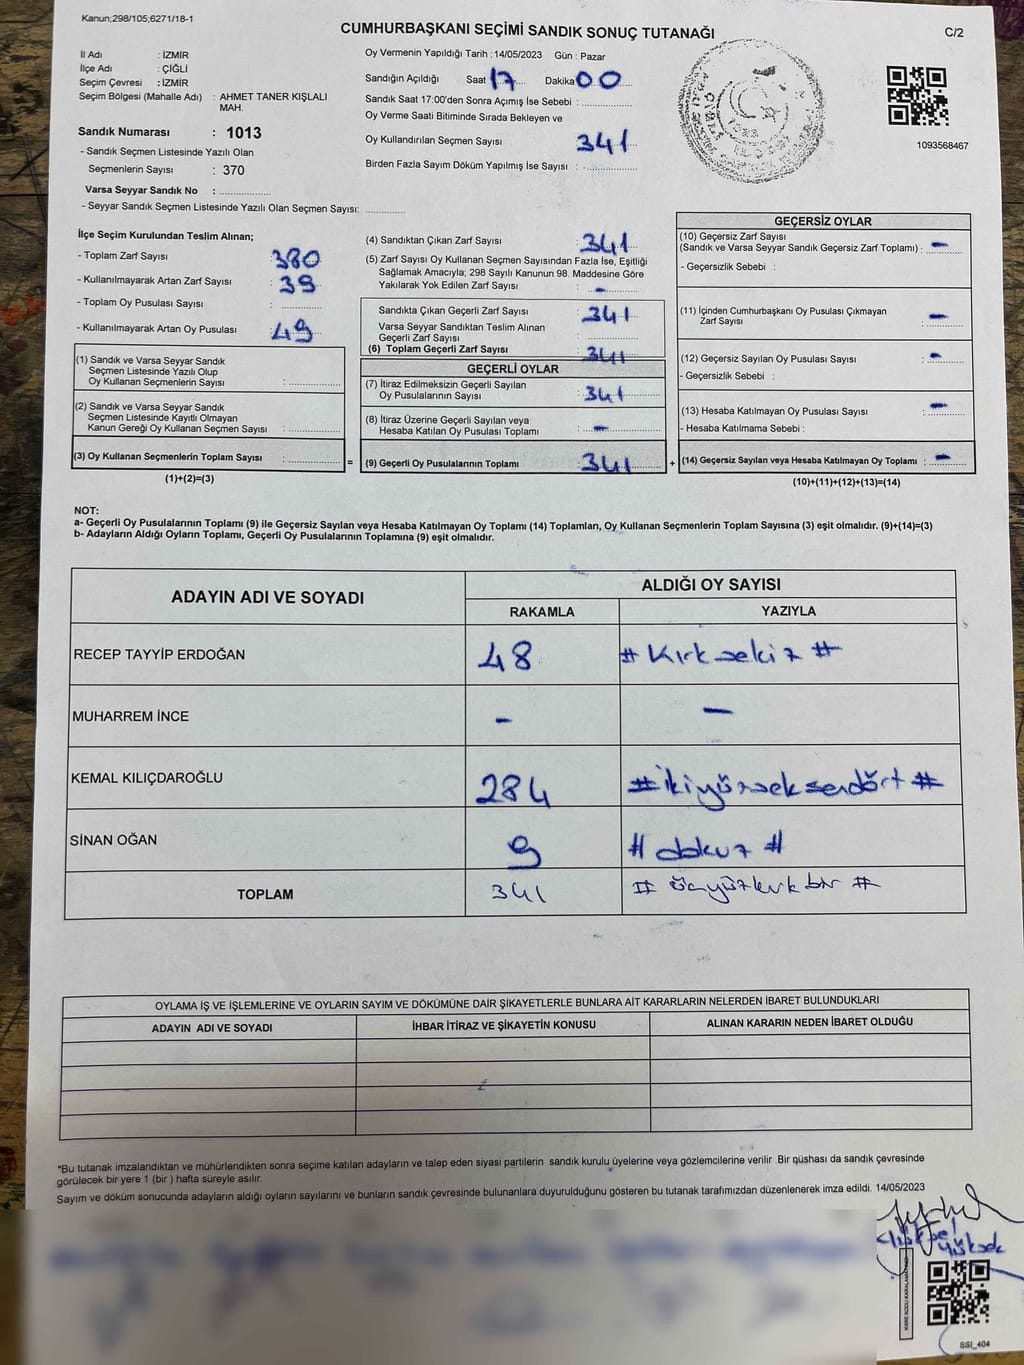 Kanun;298/105,6271/18-1
CUMHURBAŞKANI SEÇİMİ SANDIK SONUÇ TUTANAĞI
C/2
İl Adı : İZMİR
İlçe Adı : ÇİĞLİ
Seçim Çevresi : İZMİR
Seçim Bölgesi (Mahalle Adı) : AHMET TANER KIŞLALI
MAH.
Sandık Numarası : 1013
- Sandık Seçmen Listesinde Yazılı Olan
Seçmenlerin Sayısı : 370
Varsa Seyyar Sandık No :
- Seyyar Sandık Seçmen Listesinde Yazılı Olan Seçmen Sayısı:
Oy Vermenin Yapıldığı Tarih : 14/05/2023 Gün : Pazar
Sandığın Açıldığı Saat 17 Dakika 00
Sandık Saat 17:00'den Sonra Açımış İse Sebebi :
Oy Verme Saati Bitiminde Sırada Bekleyen ve
Oy Kullandırılan Seçmen Sayısı 341
Birden Fazla Sayım Döküm Yapılmış İse Sayısı :
1093568467
İlçe Seçim Kurulundan Teslim Alınan;
- Toplam Zarf Sayısı 380
- Kullanılmayarak Artan Zarf Sayısı 39
- Toplam Oy Pusulası Sayısı :
- Kullanılmayarak Artan Oy Pusulası 49
(1) Sandık ve Varsa Seyyar Sandık
Seçmen Listesinde Yazılı Olup
Oy Kullanan Seçmenlerin Sayısı :
(2) Sandık ve Varsa Seyyar Sandık
Seçmen Listesinde Kayıtlı Olmayan
Kanun Gereği Oy Kullanan Seçmen Sayısı :
(3) Oy Kullanan Seçmenlerin Toplam Sayısı :
(1)+(2)=(3)
(4) Sandıktan Çıkan Zarf Sayısı : 341
(5) Zarf Sayısı Oy Kullanan Seçmen Sayısından Fazla İse, Eşitliği
Sağlamak Amacıyla; 298 Sayılı Kanunun 98. Maddesine Göre
Yakılarak Yok Edilen Zarf Sayısı : -
Sandıkta Çıkan Geçerli Zarf Sayısı : 341
Varsa Seyyar Sandıktan Teslim Alınan
Geçerli Zarf Sayısı :
(6) Toplam Geçerli Zarf Sayısı 341
GEÇERLİ OYLAR
(7) İtiraz Edilmeksizin Geçerli Sayılan
Oy Pusulalarının Sayısı : 341
(8) İtiraz Üzerine Geçerli Sayılan veya
Hesaba Katılan Oy Pusulası Toplamı : -
= (9) Geçerli Oy Pusulalarının Toplamı : 341
GEÇERSİZ OYLAR
(10) Geçersiz Zarf Sayısı
(Sandık ve Varsa Seyyar Sandık Geçersiz Zarf Toplamı) : -
- Geçersizlik Sebebi :
(11) İçinden Cumhurbaşkanı Oy Pusulası Çıkmayan
Zarf Sayısı : -
(12) Geçersiz Sayılan Oy Pusulası Sayısı : -
- Geçersizlik Sebebi :
(13) Hesaba Katılmayan Oy Pusulası Sayısı : -
- Hesaba Katılmama Sebebi :
+ (14) Geçersiz Sayılan veya Hesaba Katılmayan Oy Toplamı : -
(10)+(11)+(12)+(13)=(14)
NOT:
a- Geçerli Oy Pusulalarının Toplamı (9) ile Geçersiz Sayılan veya Hesaba Katılmayan Oy Toplamı (14) Toplamları, Oy Kullanan Seçmenlerin Toplam Sayısına (3) eşit olmalıdır. (9)+(14)=(3)
b- Adayların Aldığı Oyların Toplamı, Geçerli Oy Pusulalarının Toplamına (9) eşit olmalıdır.
ADAYIN ADI VE SOYADI ALDIĞI OY SAYISI
RAKAMLA YAZIYLA
RECEP TAYYİP ERDOĞAN 48 # Kırksekiz #
MUHARREM İNCE - -
KEMAL KILIÇDAROĞLU 284 # ikiyüzseksendört #
SİNAN OĞAN 9 # dokuz #
TOPLAM 341 # üçyüzkırkbir #
OYLAMA İŞ VE İŞLEMLERİNE VE OYLARIN SAYIM VE DÖKÜMÜNE DAİR ŞİKAYETLERLE BUNLARA AİT KARARLARIN NELERDEN İBARET BULUNDUKLARI
ADAYIN ADI VE SOYADI İHBAR İTİRAZ VE ŞİKAYETİN KONUSU ALINAN KARARIN NEDEN İBARET OLDUĞU
*Bu tutanak imzalandıktan ve mühürlendikten sonra seçime katılan adayların ve talep eden siyasi partilerin sandık kurulu üyelerine veya gözlemcilerine verilir .Bir nüshası da sandık çevresinde
görülecek bir yere 1 (bir ) hafta süreyle asılır.
Sayım ve döküm sonucunda adayların aldığı oyların sayılarını ve bunların sandık çevresinde bulunanlara duyurulduğunu gösteren bu tutanak tarafımızdan düzenlenerek imza edildi. 14/05/2023
SSI_404